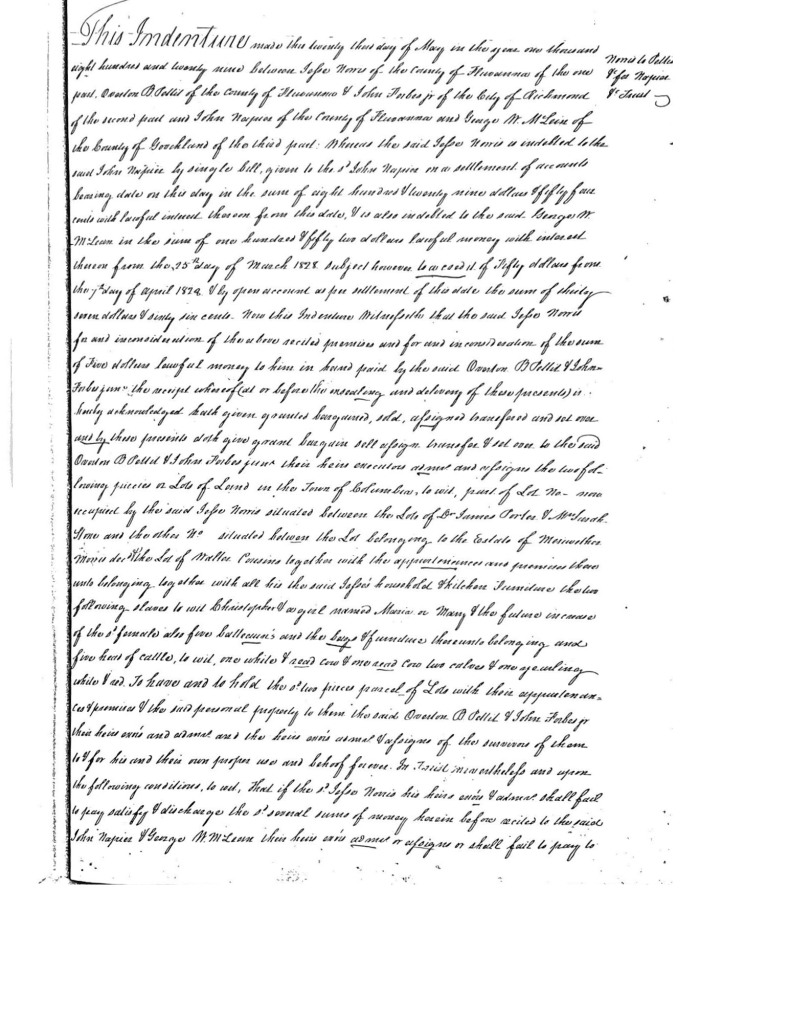 This Indenture made this twenty third day of May in the year one thousand
eight hundred and twenty nine between Jesse Norris of the County of Fluvanna of the one
part, Overton B Pettit of the County of Fluvanna & John Forbes jr of the City of Richmond
of the second part and John Napier of the County of Fluvanna and George W. McLein of
the County of Goochland of the third part: Whereas the said Jesse Norris is indebted to the
said John Napier by single bill, given to the sd John Napier on a settlement of accounts
bearing date on this day in the sum of eight hundred & twenty nine dollars & fifty four
cents with lawful interest thereon from this date, & is also indebted to the said George W.
McLean in the sum of one hundred & fifty two dollars lawful money with interest
thereon from the 25th day of March 1828 subject however to a credit of Fifty dollars from
the 7th day of April 1829 & by open account as per settlement of this date the sum of thirty
seven dollars & sixty six cents. Now this Indenture Witnesseth that the said Jesse Norris
for and in consideration of the above recited premises and for and in consideration of the sum
of Five dollars lawful money to him in hand paid by the said Overton B Pettit & John
Forbes junr the receipt whereof (at or before the ensealing and delivery of these presents) is
hereby acknowledged hath given granted bargained, sold, assigned transfered and set over
and by these presents doth give grant bargain sell assign transfer & set over to the said
Overton B Pettit & John Forbes junr their heirs executors admrs and assigns the two fol-
lowing pieces or Lots of Land in the Town of Columbia, to wit, part of Lot No - now
occupied by the said Jesse Norris situated between the Lots of Dr James Porter & Mrs Sarah
Stone and the other No situated between the Lot belonging to the Estate of Meriwether
Morris decd & the Lot of Walter Cousins together with the appurtenences and premises there
unto belonging together with all his the said Jesse's household & kitchen Furniture the two
following slaves to wit Christopher & a girl named Maria or Mary & the future increase
of the sd female also five and the & furniture thereunto belonging and
five head of cattle, to wit, one white & read cow & one read cow two calves & one yearling
white & red. To have and to hold the sd two pieces parcel of Lots with their appurtenan-
ces & premises & the said personal property to them the said Overton B Pettit & John Forbes jr
their heirs exors and admrs and the heirs exors admrs & assigns of the survivors of them
to & for his and their own proper use and behoof forever. In Trust nevertheless and upon
the following conditions, to wit, That if the sd Jesse Norris his heirs exors & admrs shall fail
to pay satisfy & discharge the sd several sums of money herein before recited to the said
John Napier & George W. McLean their heirs exors admrs or assigns or shall fail to pay to
Norris to Pettit
&c for Napier
&c Trust